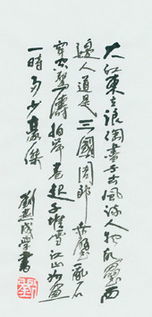 大江東去浪淘盡千古風流人物故壘西
邊人道是三國周郎赤壁亂石
穿空驚濤拍岸卷起千堆雪江山如畫
一時多少豪傑
劉
書